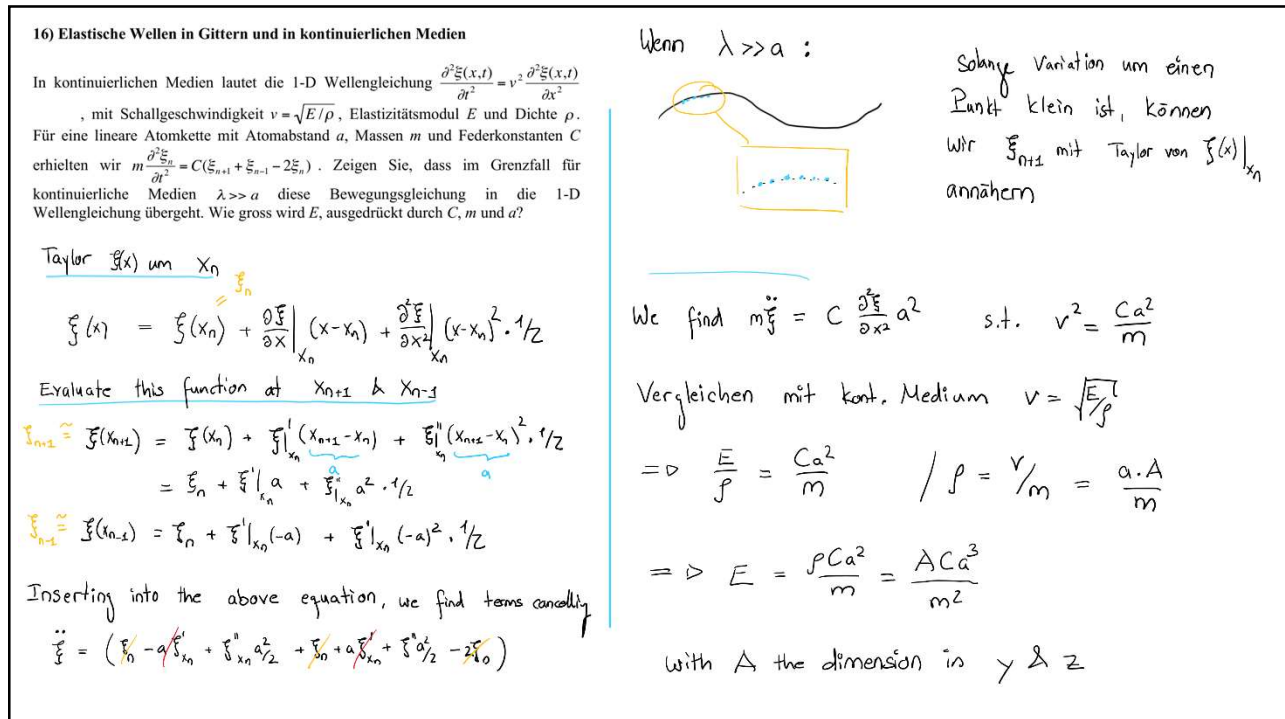 16) Elastische Wellen in Gittern und in kontinuierlichen Medien
In kontinuierlichen Medien lautet die 1-D Wellengleichung ∂²ξ(x,t)/∂t² = v² ∂²ξ(x,t)/∂x²
, mit Schallgeschwindigkeit v = √(E/ρ), Elastizitätsmodul E und Dichte ρ.
Für eine lineare Atomkette mit Atomabstand a, Massen m und Federkonstanten C
erhielten wir m ∂²ξₙ/∂t² = C(ξₙ₊₁ + ξₙ₋₁ − 2ξₙ). Zeigen Sie, dass im Grenzfall für
kontinuierliche Medien λ >> a diese Bewegungsgleichung in die 1-D
Wellengleichung übergeht. Wie gross wird E, ausgedrückt durch C, m und a?
Taylor ξ(x) um xₙ
= ξₙ
ξ(x) = ξ(xₙ) + ∂ξ/∂x|xₙ (x-xₙ) + ∂²ξ/∂x²|xₙ (x-xₙ)² · 1/2
Evaluate this function at xₙ₊₁ & xₙ₋₁
ξₙ₊₁ ≅ ξ(xₙ₊₁) = ξ(xₙ) + ξ'|xₙ (xₙ₊₁-xₙ) + ξ''|xₙ (xₙ₊₁-xₙ)² · 1/2
a a
= ξₙ + ξ'|xₙ a + ξ''|xₙ a² · 1/2
ξₙ₋₁ ≅ ξ(xₙ₋₁) = ξₙ + ξ'|xₙ (-a) + ξ'|xₙ (-a)² · 1/2
Inserting into the above equation, we find terms cancelling
ξ̈ = (ξₙ - aξ'xₙ + ξ''xₙ a²/2 + ξₙ + aξ'xₙ + ξ'' a²/2 - 2ξₙ)
Wenn λ >> a :
Solange Variation um einen
Punkt klein ist, können
wir ξₙ₊₁ mit Taylor von ξ(x)|xₙ
annähern
We find mξ̈ = C ∂²ξ/∂x² a² s.t. v² = Ca²/m
Vergleichen mit kont. Medium v = √(E/ρ)
=> E/ρ = Ca²/m / ρ = V/m = a·A/m
=> E = ρCa²/m = ACa³/m²
with A the dimension in y & z